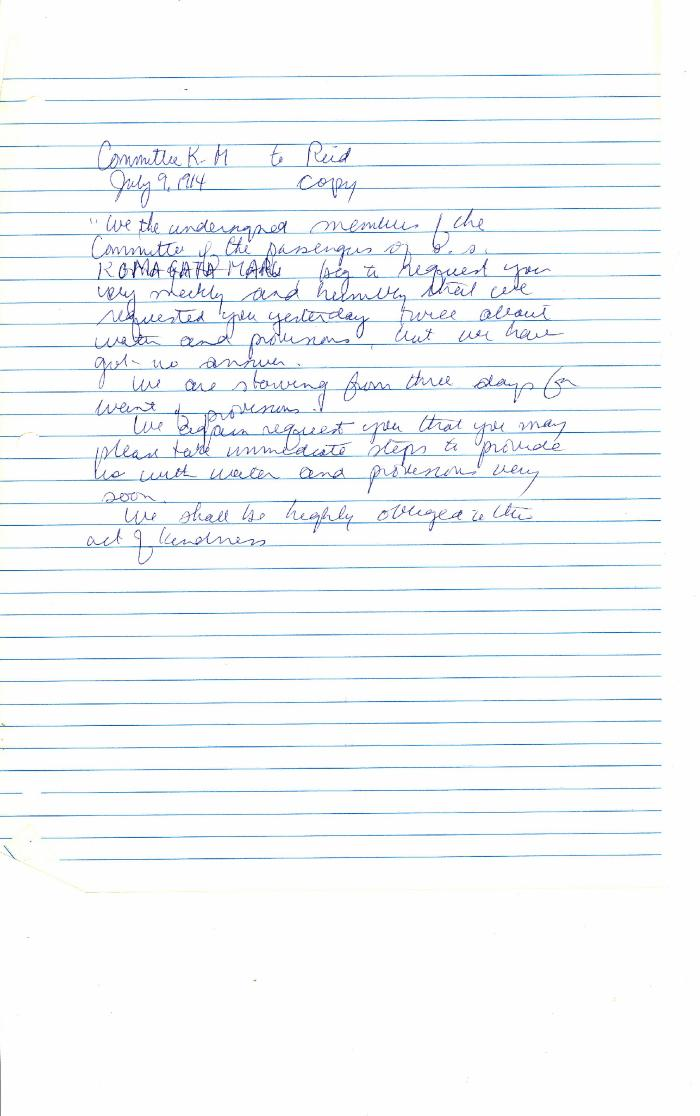 Committee K-M to Reid
July 9, 1914 copy
"We the undersigned members of the
Committee of the passengers of S. S.
KOMAGATA MARU beg to request you
very meekly and humbly that we
requested you yesterday twice about
water and provisions, but we have
got no answer.
We are starving from three days for
want of provisions.
We again request you that you may
please take immediate steps to provide
us with water and provisions very
soon.
We shall be highly obliged to this
act of kindness